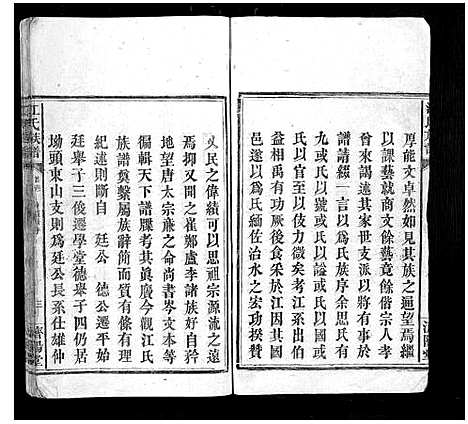 厚能文卓然如見其族之遍望焉繼
以課藝就商文餘藝竟偕宗人孝
曾來謁遂其家世支派以將有事於
譜請綴一言以爲氏族序余思氏有
九或氏以國或氏以諡或氏以官江
氏以官至以伎力微矣考江系出伯
益相禹有功厥後食采於江因其國
邑遂以爲氏溯伯益佐治水之宏功揆贊
乂民之偉績可以思祖宗源流之遠
焉抑又聞之崔鄭盧李諸族好自矜
地望唐太宗廉之命尚書岑文本等
徧輯天下譜牒考其眞廣今觀江氏
族譜奠繫屬族辭簡而質有條有理
紀述則斷自 廷公 德公遷平始
廷舉子三俊遷學堂德舉子四仍居
坳頭東山支則爲廷公長系仕雄仲
江氏族譜
濟陽堂